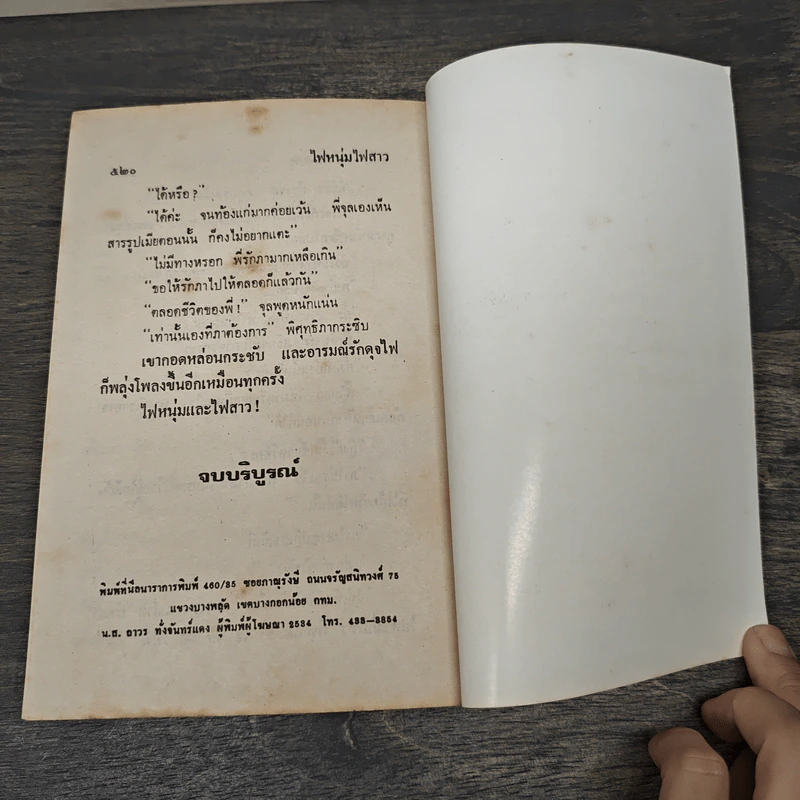 ๕๒๐ ไฟหนุ่มไฟสาว
“ได้หรือ ?”
“ได้ค่ะ จนท้องแก่มากค่อยเว้น พี่จุลเองเห็น
สารรูปเมียตอนนั้น ก็คงไม่อยากแตะ”
“ไม่มีทางหรอก พี่รักภามากเหลือเกิน”
“ขอให้รักภาไปให้ตลอดก็แล้วกัน”
“ตลอดชีวิตของพี่ !” จุลพูดหนักแน่น
“เท่านั้นเองที่ภาต้องการ” พิศุทธิภากระซิบ
เขากอดหล่อนกระชับ และอารมณ์รักดุจไฟ
ก็พลุ่งโพลงขึ้นอีกเหมือนทุกครั้ง
ไฟหนุ่มและไฟสาว !
จบบริบูรณ์
พิมพ์ที่นีลนาราการพิมพ์ 460/35 ซอยภาณุรังษี ถนนจรัญสนิทวงศ์ 75
แขวงบางพลัด เขตบางกอกน้อย กทม.
น.ส. ถาวร ทั่งจันทร์แดง ผู้พิมพ์ผู้โฆษณา 2534 โทร. 433—3854